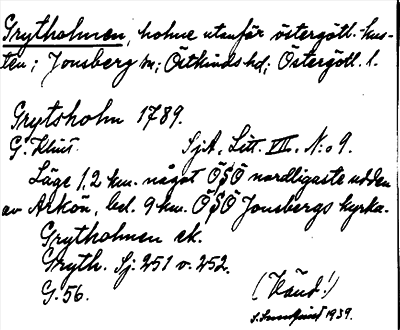 Grytholmen, holme utanför östergötl. kus-
ten; Jonsberg sn; Östkinds hd; Östergötl. l.
Grytsholm 1789.
G. Klint. SjA. Litt. VII. N:o 9.
Läge 1,2 km. något ÖSÖ nordligaste udden
av Arkön, bel. 9 km. ÖSÖ Jonsbergs kyrka.
Grytholmen ek.
Gryth. Sj: 251 o. 252.
G. 56. (Vänd!)
1939.